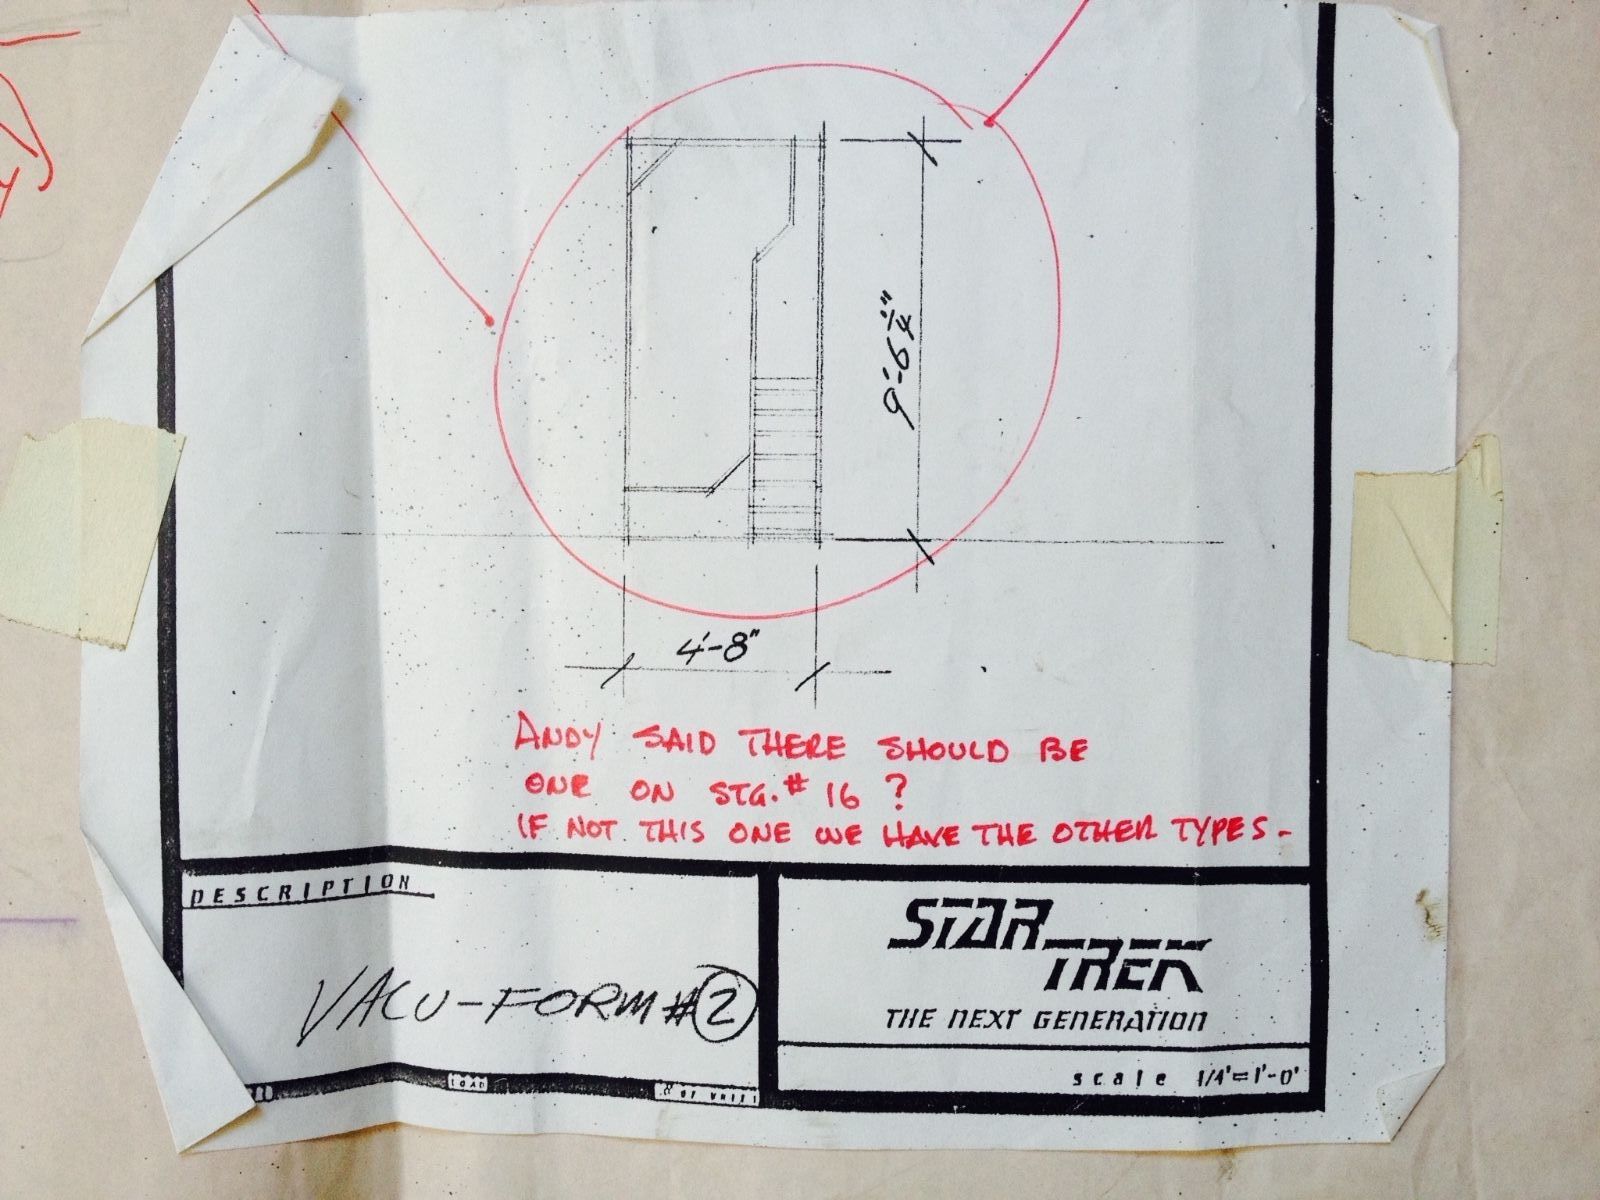 9'-6 1/4"
4'-8"
ANDY SAID THERE SHOULD BE
ONE ON STG. # 16 ?
IF NOT THIS ONE WE HAVE THE OTHER TYPES-
DESCRIPTION
VACU-FORM #2
STAR
TREK
THE NEXT GENERATION
scale 1/4'=1'-0'
LOAD